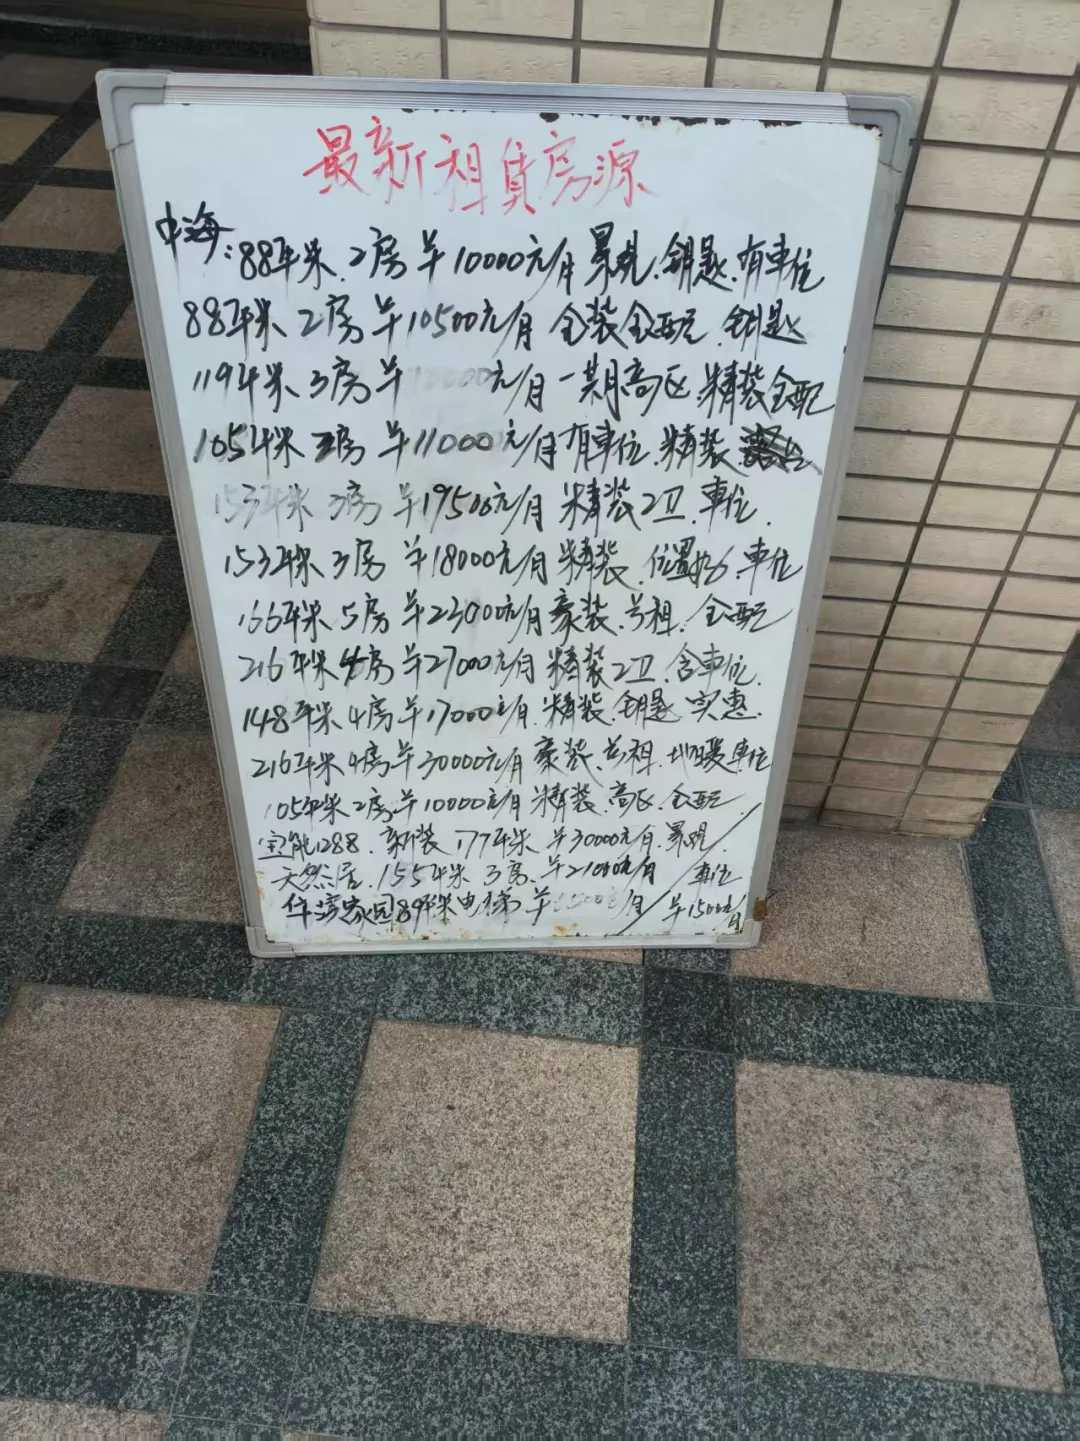 最新租赁房源
中海:88平米.2房 ¥10000元/月 景观.钥匙.有車位
88平米 2房 ¥10500元/月 全装全配 钥匙
119平米 3房 ¥元/月 一期高区.精装全配
105平米 房 ¥11000元/月 有車位.精装
153平米 3房 ¥19500元/月 精装 2卫.車位.
153平米 3房 ¥18000元/月 精装.位置好.車位
166平米 5房 ¥23000元/月 豪装.另租.全配
216平米 4房 ¥27000元/月 精装 2卫.含車位.
148平米 4房 ¥17000元/月.精装.钥匙 实惠.
216平米 4房 ¥30000元/月 豪装.另租.地暖車位
105平米 2房 ¥10000元/月 精装.高区.全配
宝能1288.新装 177平米.¥30000元/月.景观.
天然居.155平米 3房.¥21000元/月 車位
华湾家园89平米电梯 ¥元/月 / ¥1500元/月